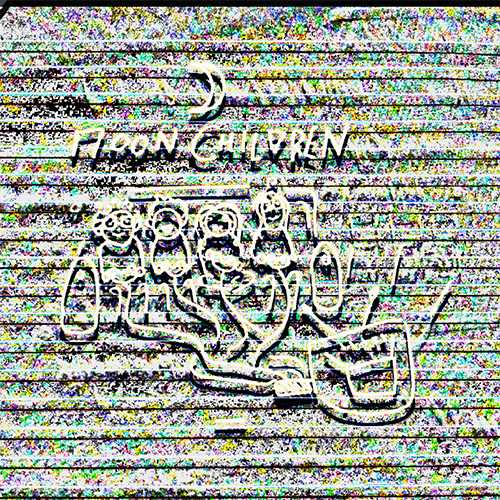 MOON CHILDREN